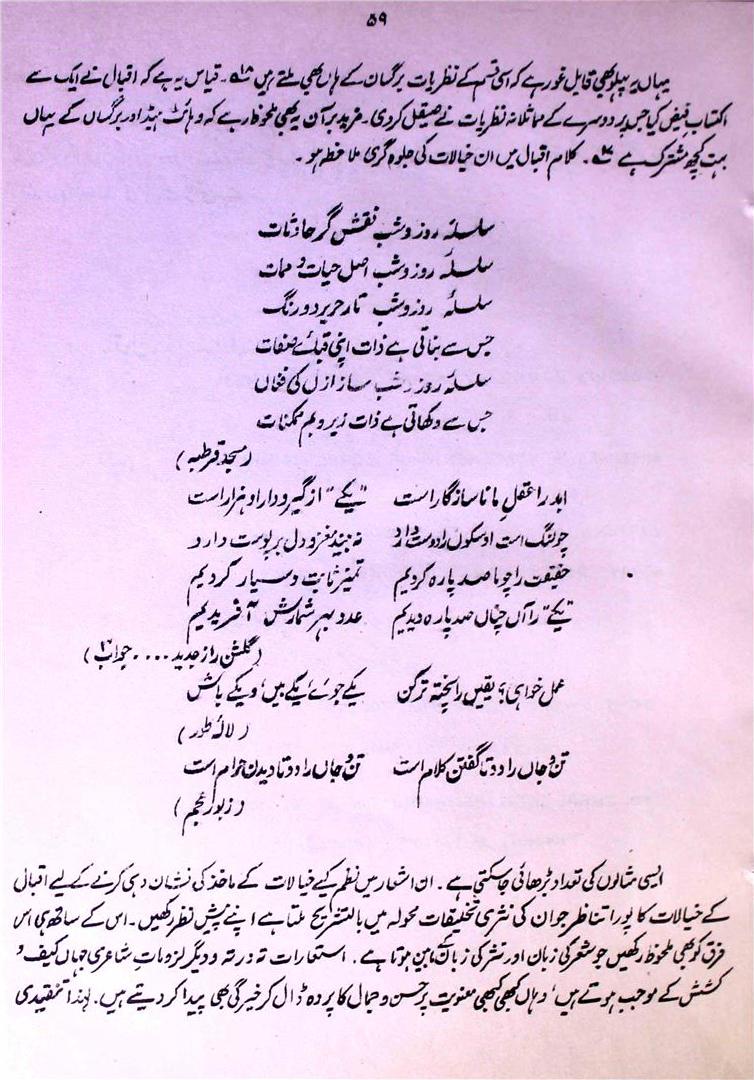 ۵۹
یہاں یہ پہلو بھی قابل غور ہے کہ اسی قسم کے نظریات برگسان کے ہاں بھی ملتے ہیں۔ قیاس یہ ہے کہ اقبال نے ایک سے
اکتساب فیض کیا جس پر دوسرے کے مماثلانہ نظریات نے صیقل کردی۔ مزید برآن یہ بھی ملحوظ رہے کہ وہائٹ ہیڈ اور برگساں کے یہاں
بہت کچھ مشترک ہے۔ کلام اقبال میں ان خیالات کی جلوہ گری ملاحظہ ہو۔
سلسلۂ روز و شب نقش گر حادثات
سلسلۂ روز و شب اصل حیات و ممات
سلسلۂ روز و شب تار حریر دو رنگ
جس سے بناتی ہے ذات اپنی قبائے صفات
سلسلۂ روز و شب ساز ازل کی فغاں
جس سے دکھاتی ہے ذات زیر و بم ممکنات
(مسجد قرطبہ)
ابد را عقلِ ما ناسازگار است "یکے" از گیر و دار او ہزار است
چو لنگ است او سکوں را دوست دارد نہ بیند مغز و دل بر پوست دارد
حقیقت را چو ما صد پارہ کردیم تمیز ثابت و سیار کردیم
"یکے" را آں چناں صد پارہ دیدیم عدد بہر شمارش آفریدیم
(گلشن راز جدید .... جواب ۲)
عمل خواہی؟ یقیں را پختہ تر کن یکے جوئے، یکے بیں، و یکے باش
(لالۂ طور)
تن و جاں را دوتا گفتن کلام است تن و جاں را دوتا دیدن حرام است
(زبور عجم)
ایسی مثالوں کی تعداد بڑھائی جاسکتی ہے۔ ان اشعار میں نظم کیے خیالات کے ماخذ کی نشان دہی کرنے کے لیے اقبال
کے خیالات کا پورا تناظر جو ان کی نثری تخلیقات محولہ میں بالتشریح ملتا ہے اپنے پیش نظر رکھیں۔ اس کے ساتھ ہی اس
فرق کو بھی ملحوظ رکھیں جو شعر کی زبان اور نثر کی زبان کے مابین ہوتا ہے۔ استعارات تہ در تہ و دیگر لزومات شاعری جہاں کیف و
کشش کے موجب ہوتے ہیں، وہاں کبھی کبھی معنویت پر حسن و جمال کا پردہ ڈال کر خیرگی بھی پیدا کر دیتے ہیں۔ لہٰذا تنقیدی